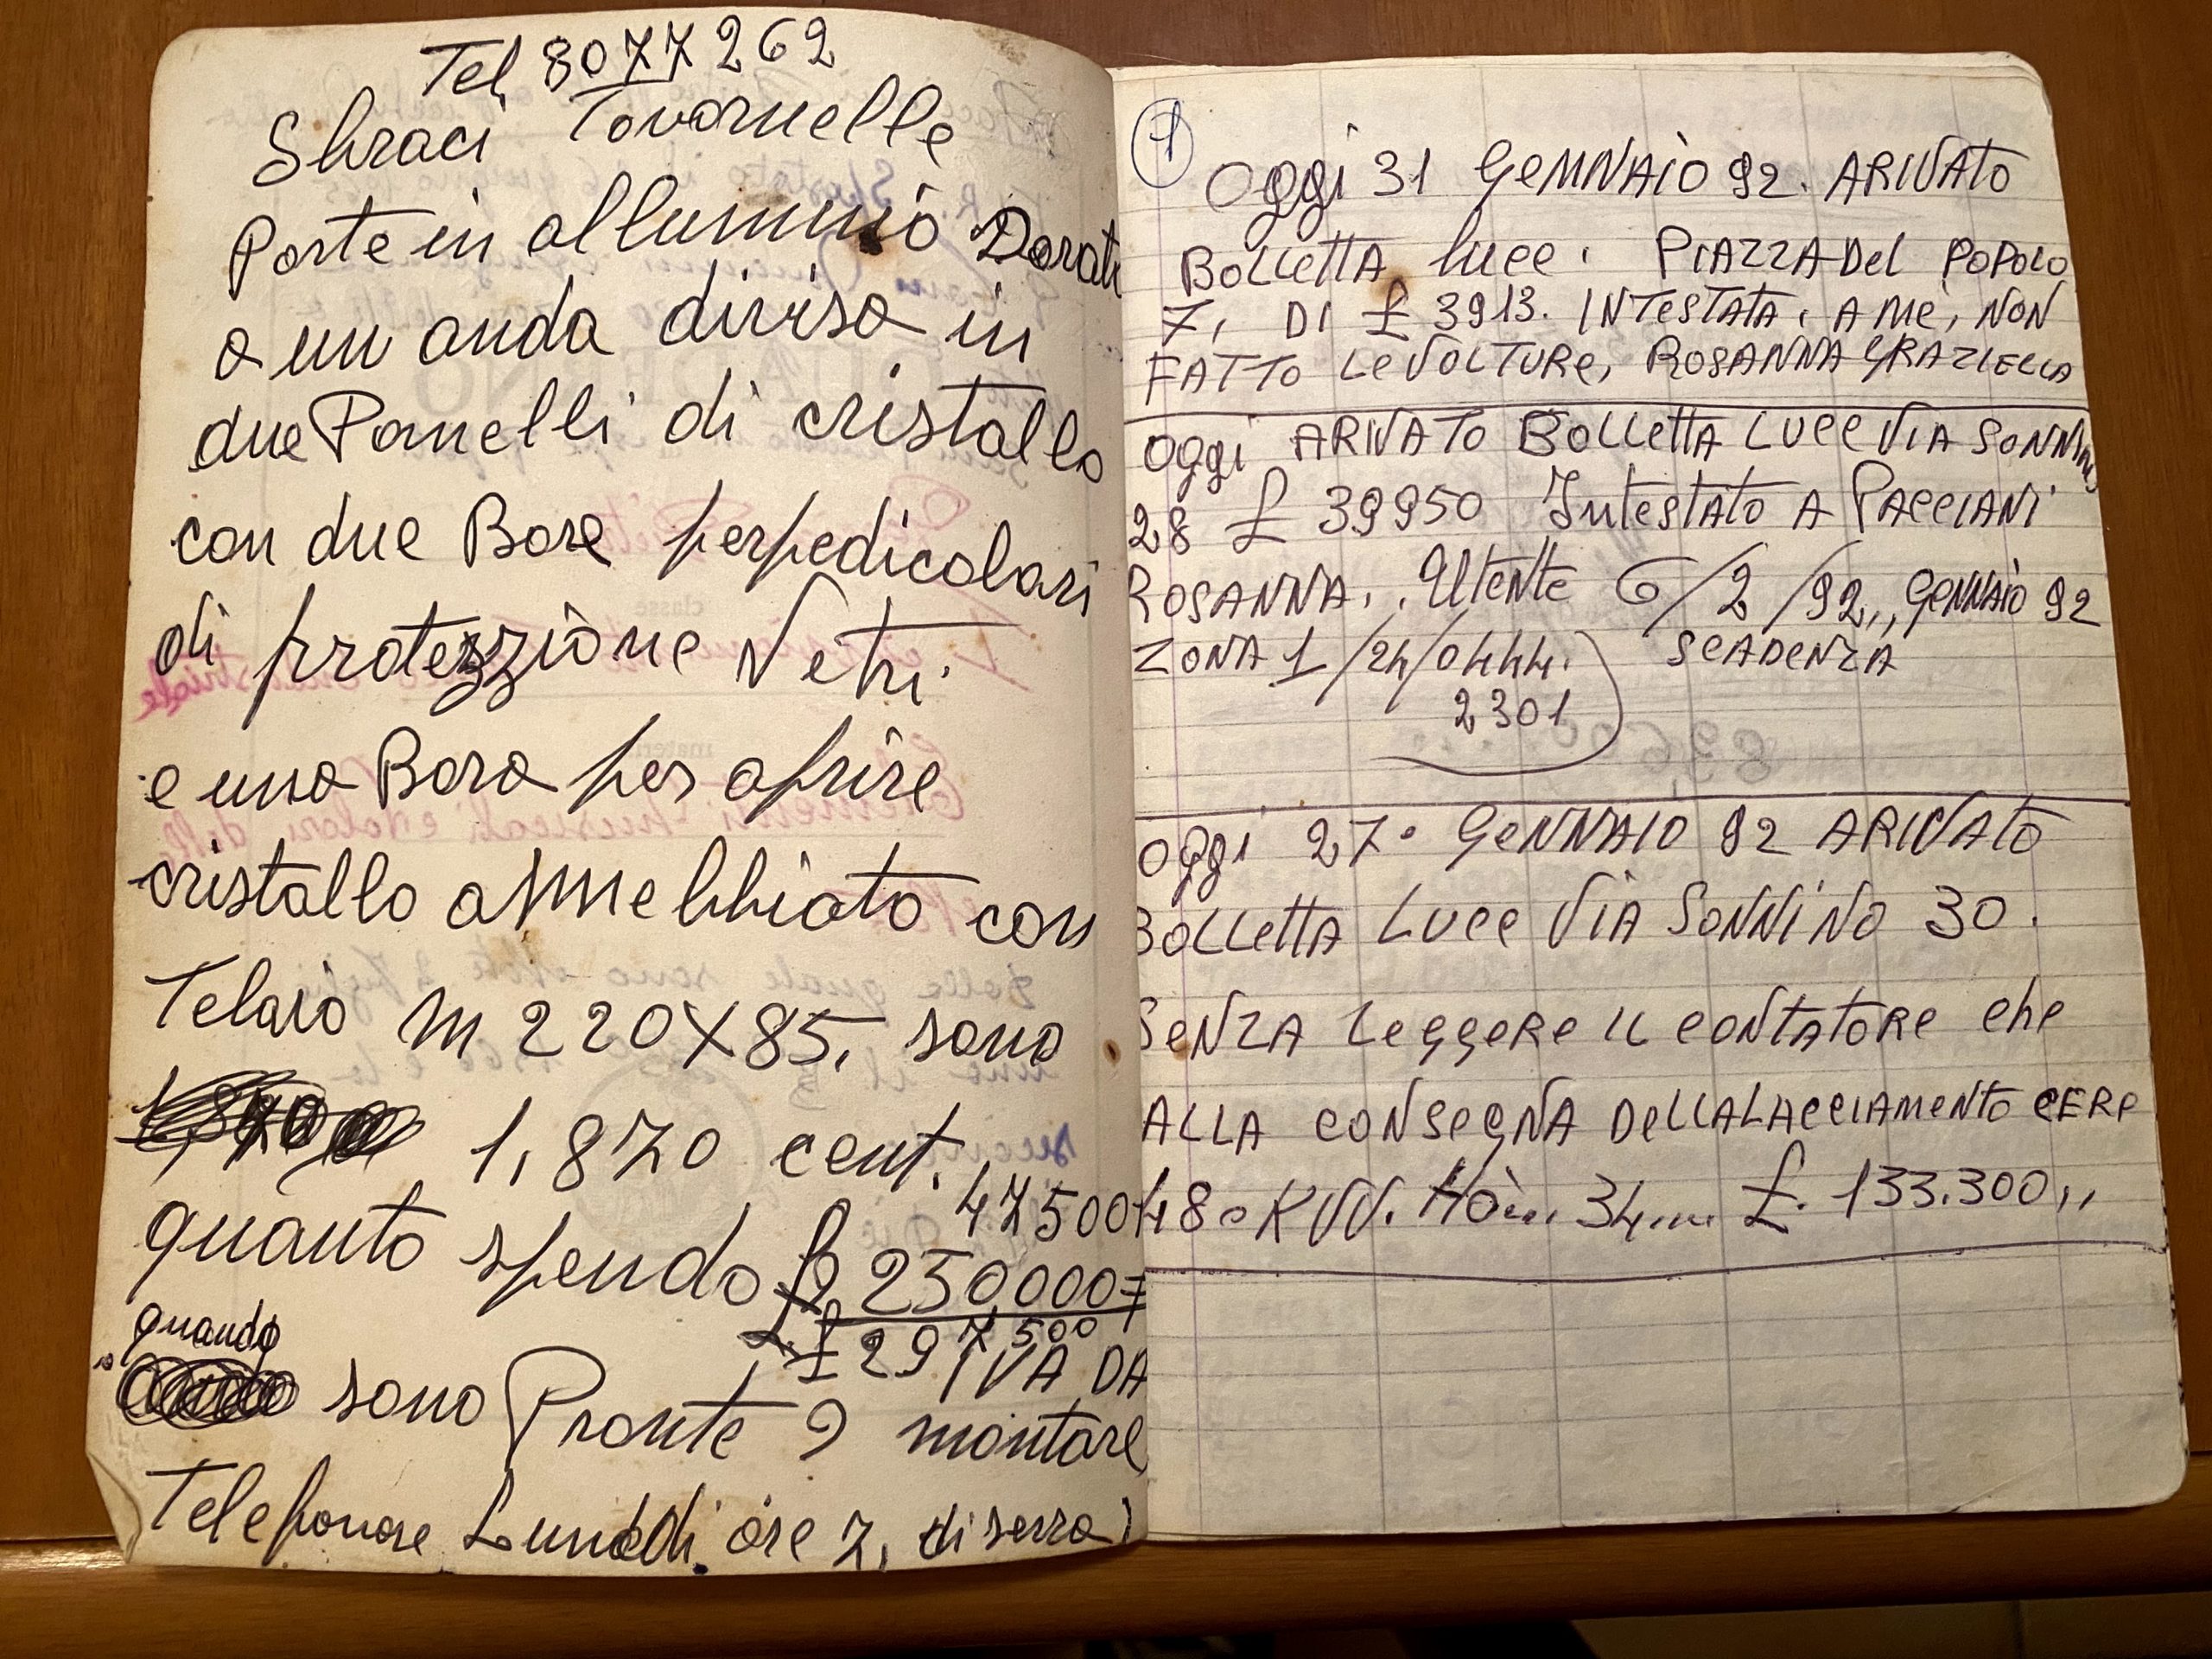 Tel, 8077262
Sbraci Tovarnelle
Porte in alluminio Dorati
a un anda divisa in
due Pannelli di cristallo
con due Bare perpedicolari
di protezzione Vetri.
e una Bara per aprire
cristallo annebbiato con
Telaio m 220X85, sono
1,870 cent.
47500
quanto spendo £ 250000=
£ 297500
quando
IVA DA
sono Pronte? montare
Telefonare Luneddi, ore 7, di serra)
1
Oggi 31 GENNAiO 92. ARIVATO
BOLLETTA luce. PIAZZA DEL POPOLO
7, DI £ 3913. INTESTATA, A ME, NON
FATTO LE VOLTURE, ROSANNA GRAZIELLA
Oggi ARIVATO BOLLETTA LUCE VIA SONNINO
28 £ 39950 Intestato A PACCIANI
ROSANNA,. Utente 6/2/92,, GENNAiO 92
ZONA 1/24/0444. SCADENZA
2301
Oggi 27° GENNAIO 92 ARIVATO
BOLLETTA LUCE VIA SONNiNO 30.
SENZA LEGGERE IL CONTATORE che
ALLA CONSEGNA DELLALACCIAMENTO CERA
48° KW. 34 £. 133.300,,